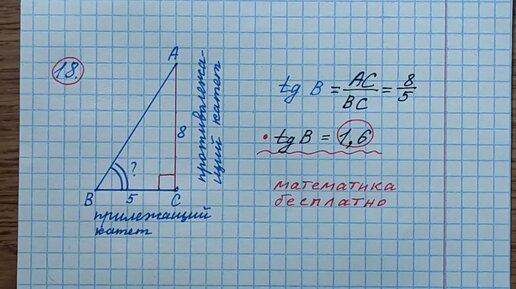 18.
A
8
?
B
5
C
противолежа-
щий катет
прилежащий
катет
tg B = AC/BC = 8/5
• tg B = 1,6
математика
бесплатно